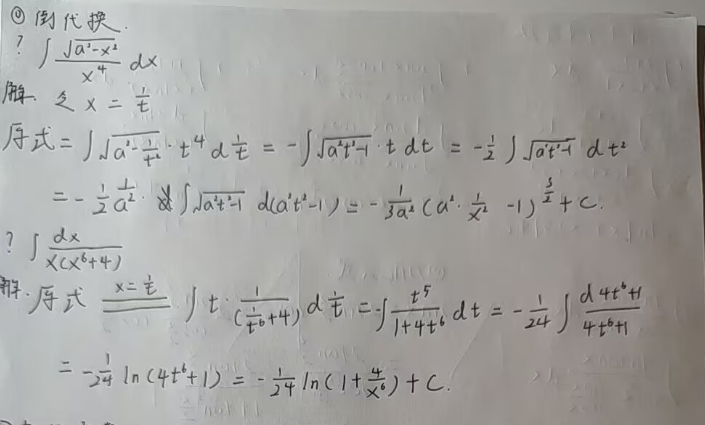 ① 倒代换.
? ∫ √(a²-x²) / x⁴ dx
解. 令 x = 1/t
原式 = ∫ √(a² - 1/t²) · t⁴ d 1/t = -∫ √(a²t²-1) · t dt = -1/2 ∫ √(a²t²-1) dt²
= -1/2 1/a² · ∫ √(a²t²-1) d(a²t²-1) = -1/(3a²) (a² · 1/x² - 1)^(3/2) + C.
? ∫ dx / x(x⁶+4)
解. 原式 x=1/t ∫ t · 1/(1/t⁶+4) d 1/t = -∫ t⁵/(1+4t⁶) dt = -1/24 ∫ d 4t⁶+1 / 4t⁶+1
= -1/24 ln(4t⁶+1) = -1/24 ln(1+4/x⁶) + C.